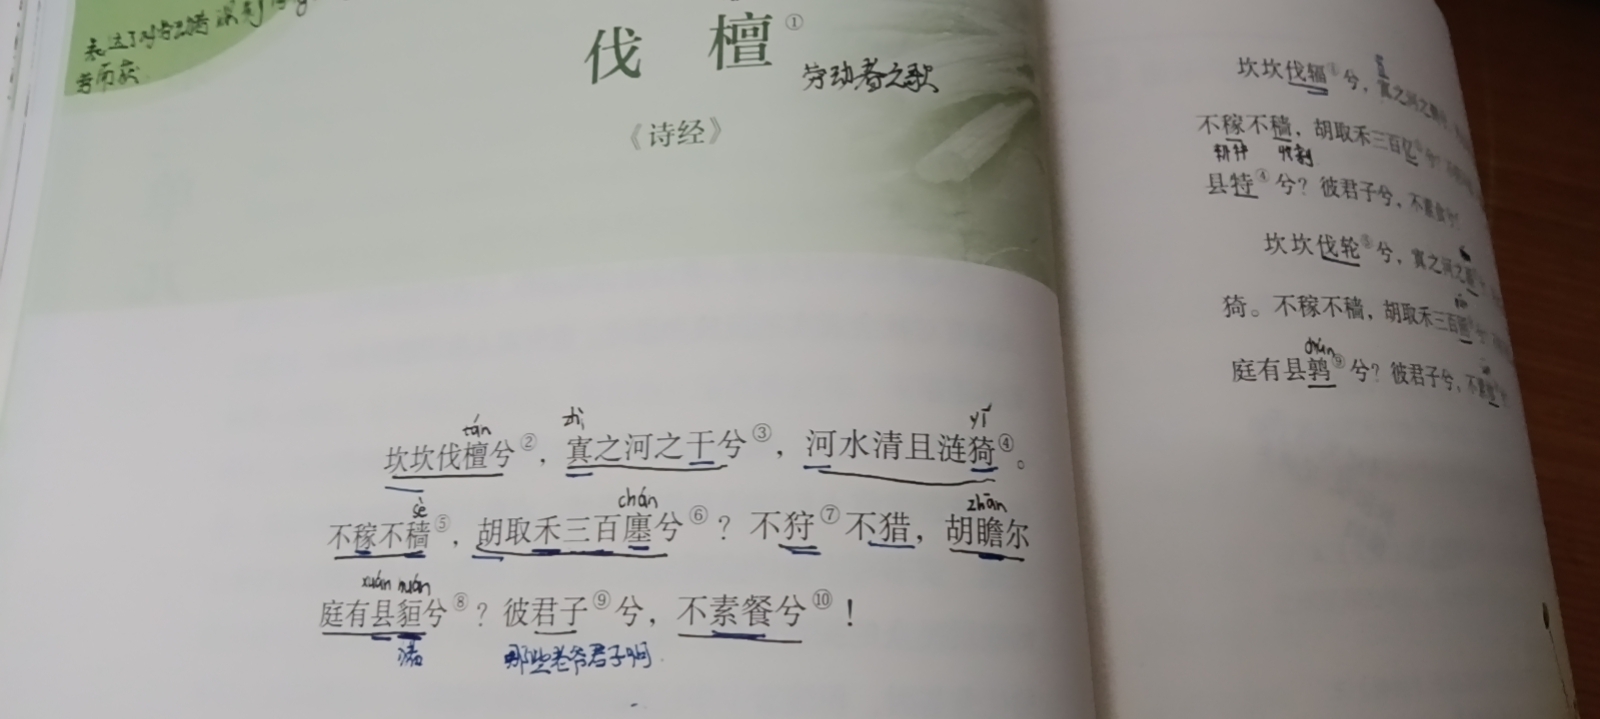 伐 檀①
劳动者之歌
《诗经》
tán zhì yī
坎坎伐檀兮②，寘之河之干兮③，河水清且涟猗④。
sè chán zhān
不稼不穑⑤，胡取禾三百廛兮⑥？不狩⑦不猎，胡瞻尔
xuán huán
庭有县貆兮⑧？彼君子⑨兮，不素餐兮⑩！
猪 那些老爷君子啊
坎坎伐辐①兮，寘之河之
不稼不穑，胡取禾三百亿
耕种 收割
县特④兮？彼君子兮，不素食兮！
坎坎伐轮⑤兮，寘之河之
猗。不稼不穑，胡取禾三百
chún
庭有县鹑⑨兮？彼君子兮，不素